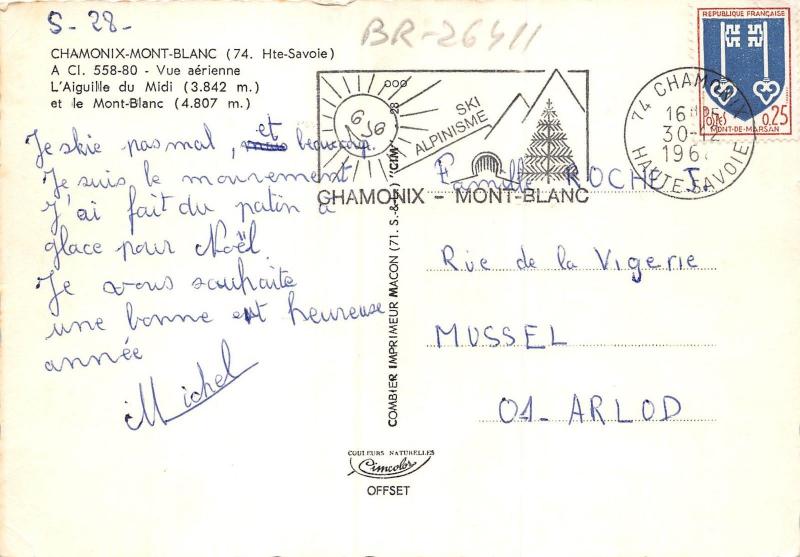 S-28-
BR-26411
CHAMONIX-MONT-BLANC (74. Hte-Savoie)
A Cl. 558-80 - Vue aérienne
L'Aiguille du Midi (3.842 m.)
et le Mont-Blanc (4.807 m.)
Je skie pas mal, et beaucoup.
Je suis le mouvement
J'ai fait du patin à
glace pour Noël.
Je vous souhaite
une bonne et heureuse
année
Michel
SKI
ALPINISME
CHAMONIX - MONT-BLANC
74 CHAMONIX
30-12
HAUTE-SAVOIE
REPUBLIQUE FRANÇAISE
POSTES 0,25
MONT-DE-MARSAN
COMBIER IMPRIMEUR MACON (71. S.-&-L.) "CIM"
Famille ROCHE J.
Rue de la Vigerie
MUSSEL
01-ARLOD
COULEURS NATURELLES
Cimcolor
OFFSET